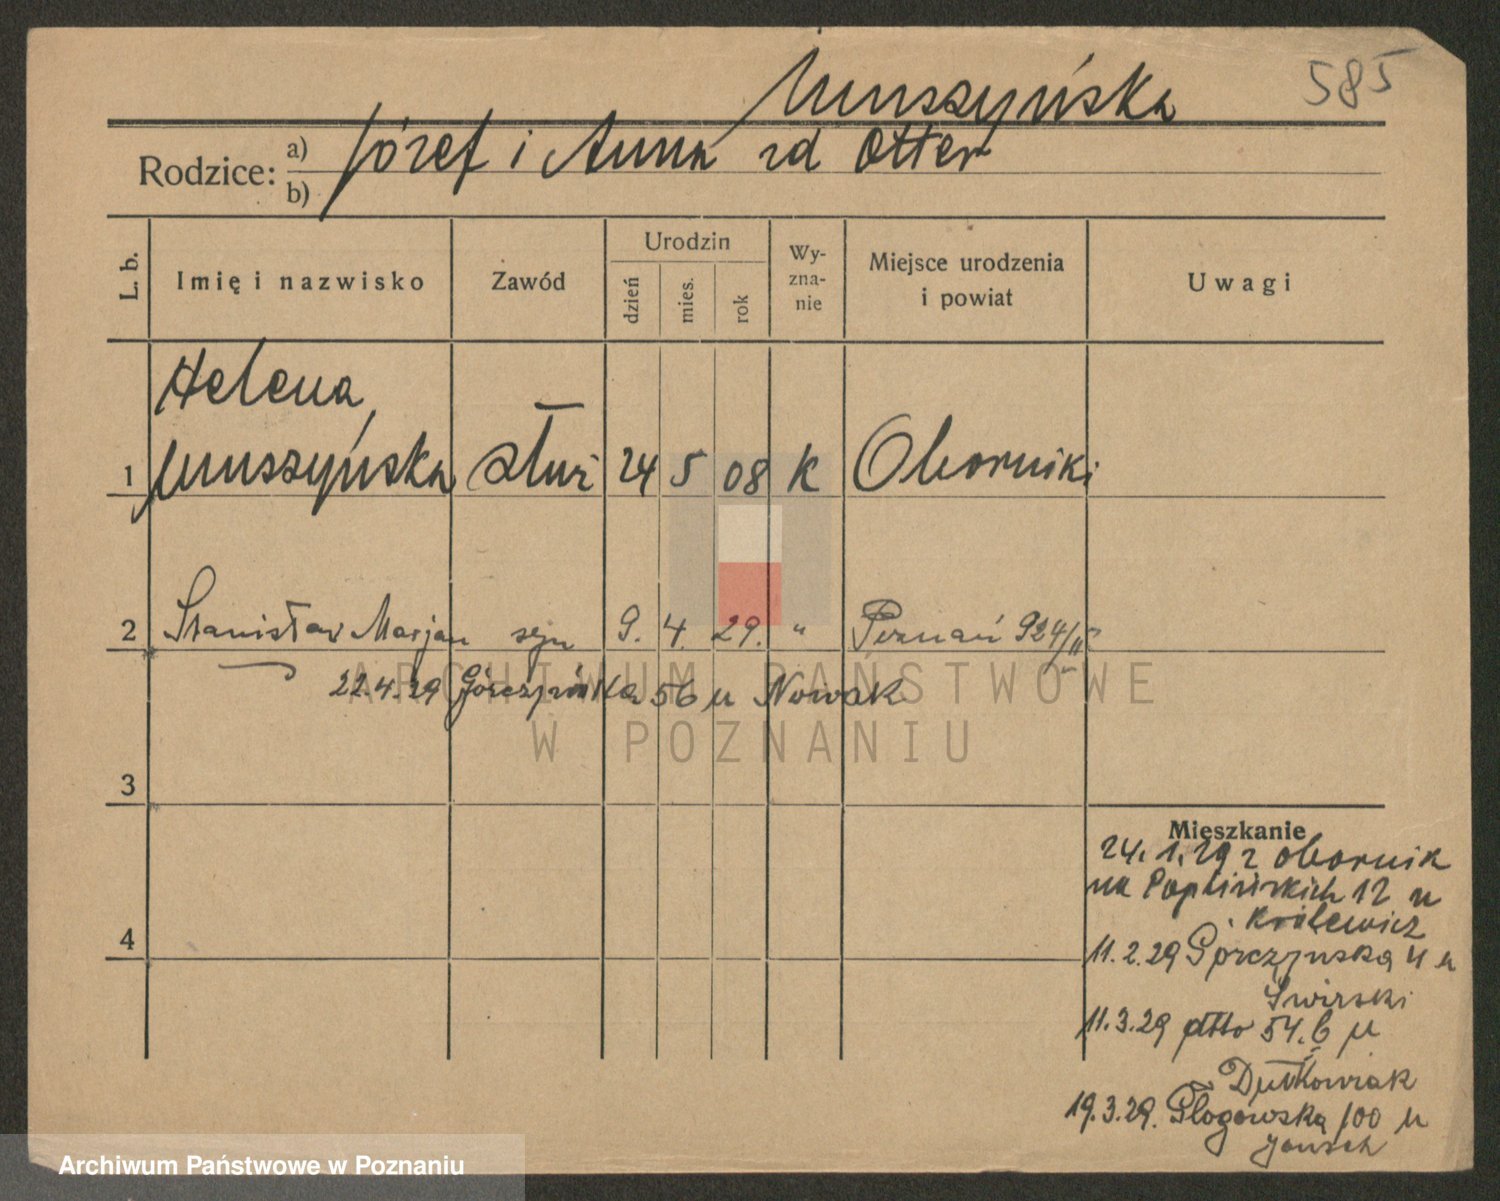 Muszyńska
585
Rodzice: a) b) Józef i Anna zd Otter
L. b. Imię i nazwisko Zawód Urodzin dzień mies. rok Wy-zna-nie Miejsce urodzenia i powiat Uwagi
Helena
1 Muszyńska służ 24 5 08 K Oborniki
2 Stanisław Marjan syn 9. 4. 29. " Poznań 924/II
22.4.29 Górczyńska 56 u Nowak
ARCHIWUM PAŃSTWOWE
W POZNANIU
3
4
Mieszkanie
24.1.29 z Obornik
na Paplińskich 12 u
Królewicz
11.2.29 Górczyńska 4 u
Świrski
11.3.29 dtto 54.6 u
Dutkowiak
19.3.29. Głogowska 100 u
Jansch
Archiwum Państwowe w Poznaniu